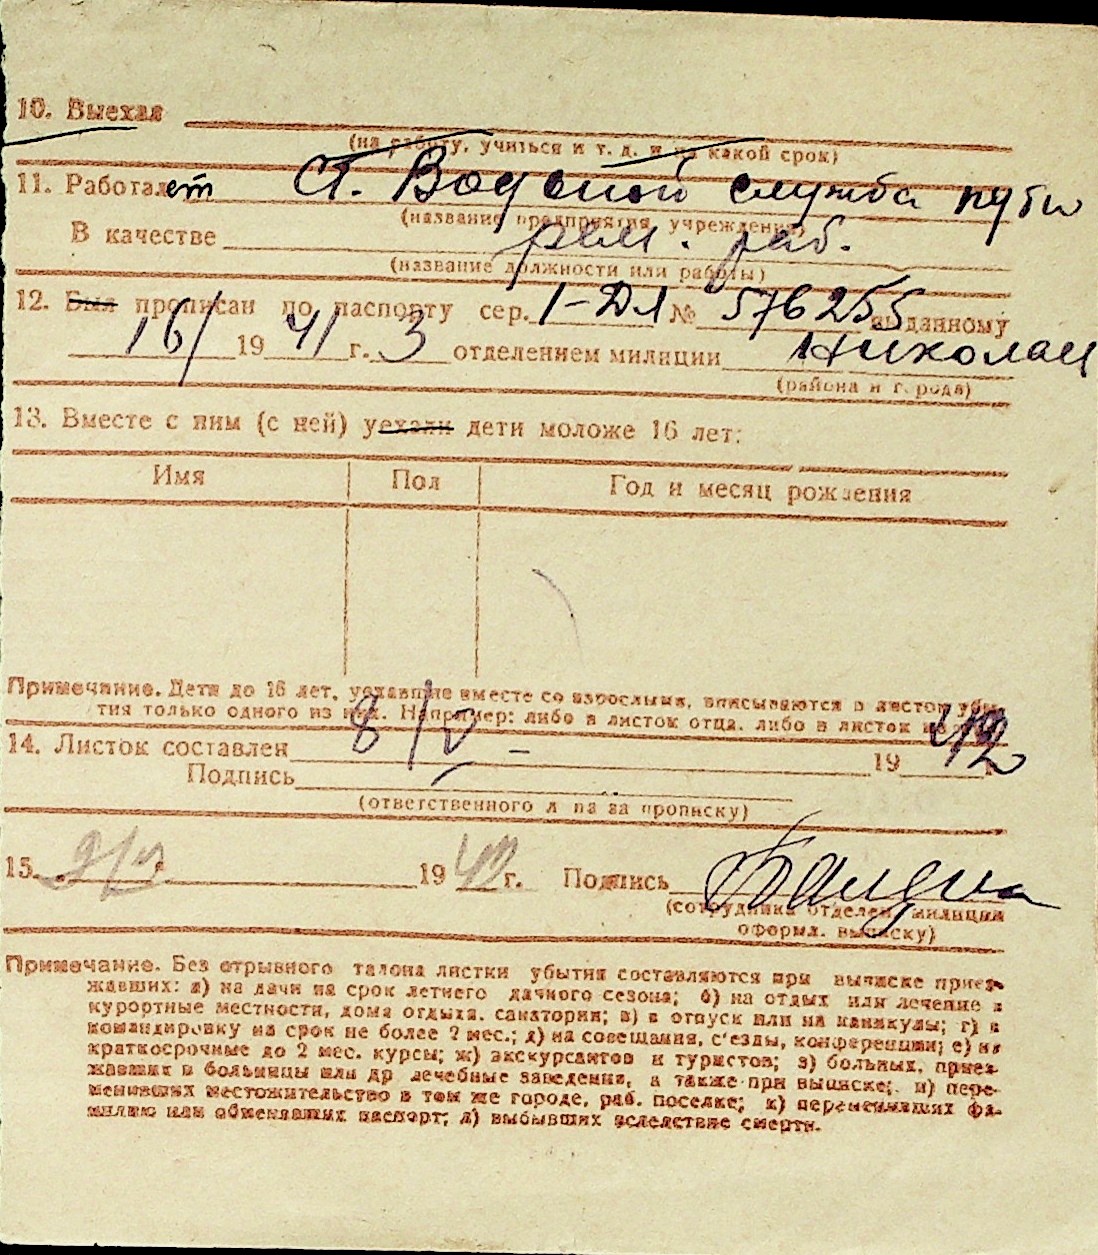 10. Выехал
(на работу, учиться и т. д. и на какой срок)
11. Работает Ст. Водопой служба пути
(название предприятия, учреждения)
В качестве рем. раб.
(название должности или работы)
12. Был прописан по паспорту сер. 1-ДЛ № 576255 выданному
16/ 1941 г. 3 отделением милиции Николаев
(района и города)
13. Вместе с ним (с ней) уехали дети моложе 16 лет:
Имя Пол Год и месяц рождения
Примечание. Дети до 16 лет, уехавшие вместе со взрослыми, вписываются в листок убы-
тия только одного из них. Например: либо в листок отца, либо в листок
14. Листок составлен 8/V - 1942
Подпись
(ответственного лица за прописку)
15. 9/V 1942 г. Подпись
(сотрудника отделен. милиции
оформл. выписку)
Примечание. Без отрывного талона листки убытия составляются при выписке приез-
жавших: а) на дачи на срок летнего дачного сезона; б) на отдых или лечение в
курортные местности, дома отдыха, санатории; в) в отпуск или на каникулы; г) в
командировку на срок не более 2 мес.; д) на совещания, с'езды, конференции; е) на
краткосрочные до 2 мес. курсы; ж) экскурсантов и туристов; з) больных, приез-
жавших в больницы или др лечебные заведения, а также при выписке; и) пере-
менивших местожительство в том же городе, раб. поселке; к) переменивших фа-
милию или обменявших паспорт; л) выбывших вследствие смерти.